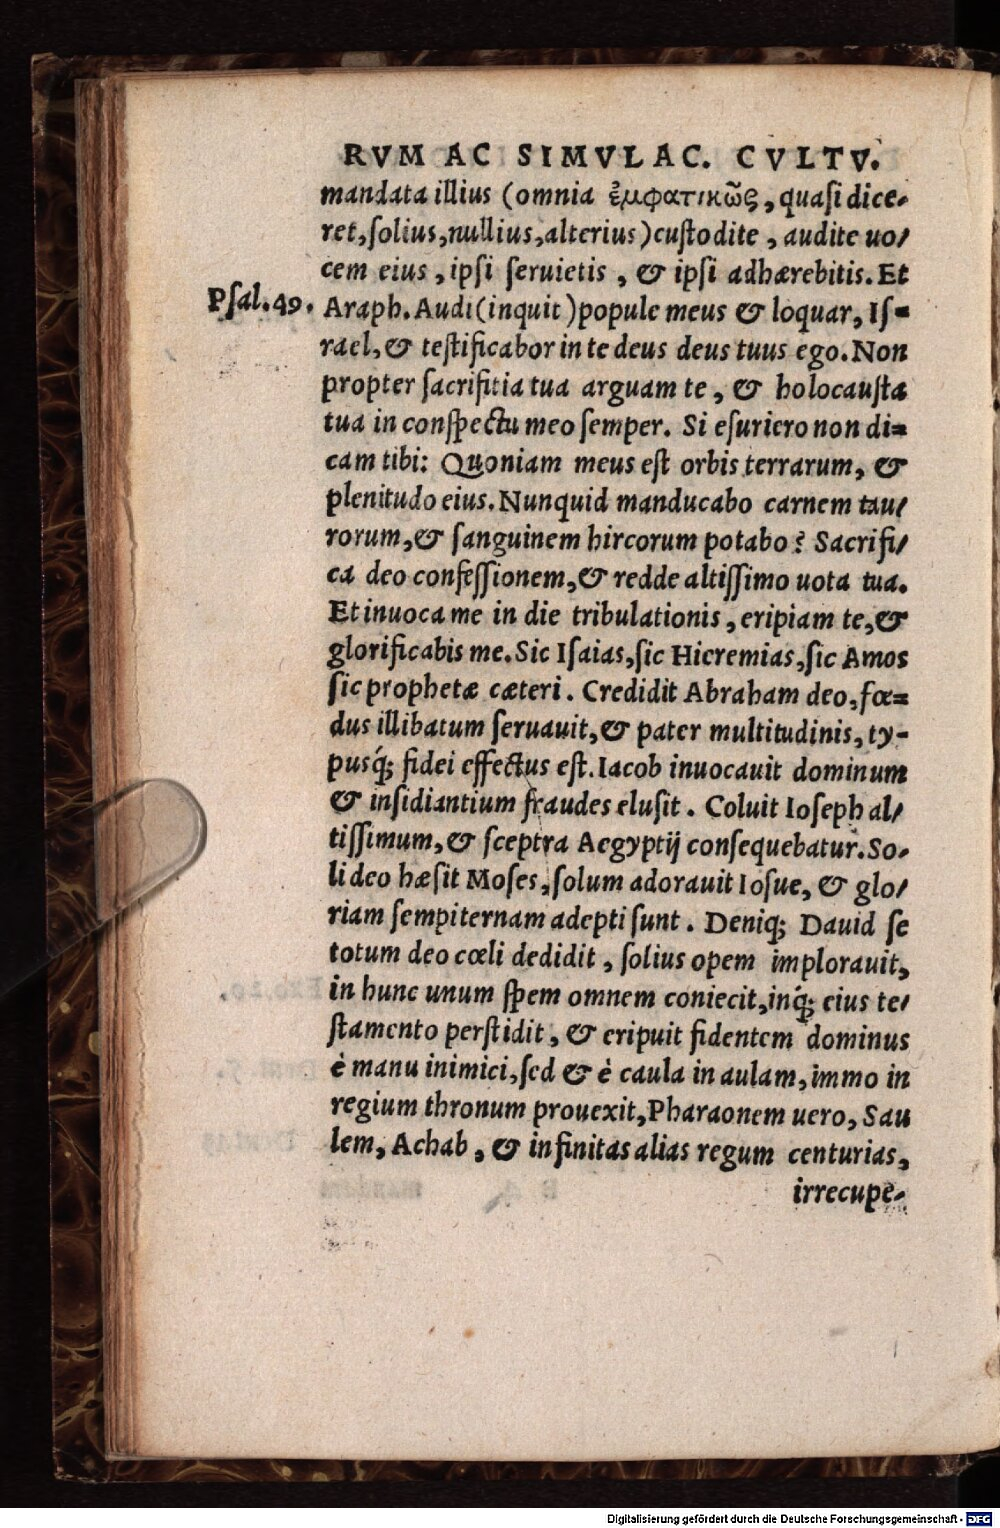 RVM AC SIMVLAC. CVLTV.
mandata illius (omnia ἐμφατικῶς, quaſi dice-
ret, ſolius, nullius, alterius) cuſtodite, audite uo/
cem eius, ipſi ſeruietis, & ipſi adhærebitis. Et
Psal. 49. Araph. Audi (inquit) popule meus & loquar, Iſ=
rael, & teſtificabor in te deus deus tuus ego. Non
propter ſacrifitia tua arguam te, & holocauſta
tua in conſpectu meo ſemper. Si eſuriero non di=
cam tibi: Quoniam meus eſt orbis terrarum, &
plenitudo eius. Nunquid manducabo carnem tau/
rorum, & ſanguinem hircorum potabo? Sacrifi/
ca deo confeſſionem, & redde altiſſimo uota tua.
Et inuoca me in die tribulationis, eripiam te, &
glorificabis me. Sic Iſaias, ſic Hieremias, ſic Amos
ſic prophetæ cæteri. Credidit Abraham deo, fœ=
dus illibatum ſeruauit, & pater multitudinis, ty-
pusq́; fidei effectus eſt. Iacob inuocauit dominum
& inſidiantium fraudes eluſit. Coluit Ioſeph al/
tiſſimum, & ſceptra Aegyptij conſequebatur. So-
li deo hæſit Moſes, ſolum adorauit Ioſue, & glo/
riam ſempiternam adepti ſunt. Deniq; Dauid ſe
totum deo cœli dedidit, ſolius opem implorauit,
in hunc unum ſpem omnem coniecit, inq́; eius te/
ſtamento perſtidit, & eripuit fidentem dominus
è manu inimici, ſed & è caula in aulam, immo in
regium thronum prouexit, Pharaonem uero, Sau
lem, Achab, & infinitas alias regum centurias,
irrecupe-
Digitalisierung gefördert durch die Deutsche Forschungsgemeinschaft - DFG